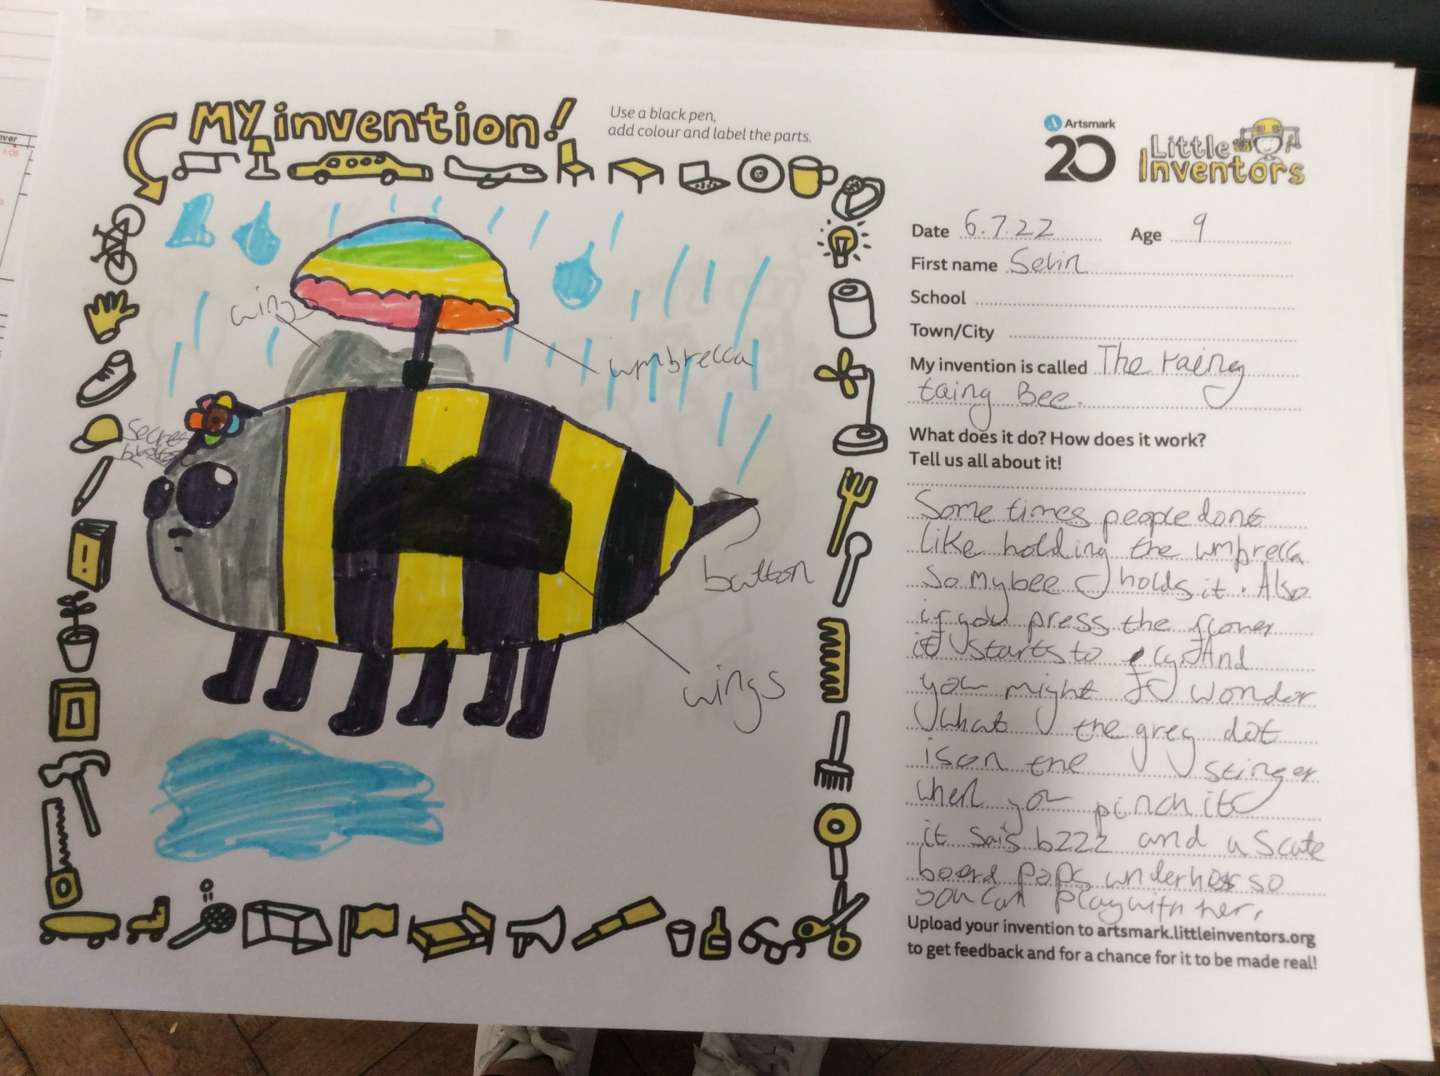 My invention!
Use a black pen,
add colour and label the parts.
Artsmark
20
Little
Inventors
wings
umbrella
secret
button
wings
Date 6.7.22 Age 9
First name Selin
School
Town/City
My invention is called The raing
taing Bee.
What does it do? How does it work?
Tell us all about it!
Some times people dont
like holding the umbrella
so my bee holds it. Also
if you press the flower
it starts to fly And
you might wonder
what the grey dot
is on the stinger
when you pinch it
it sais bzzz and a scate
board pops under her so
you can play with her.
Upload your invention to artsmark.littleinventors.org
to get feedback and for a chance for it to be made real!